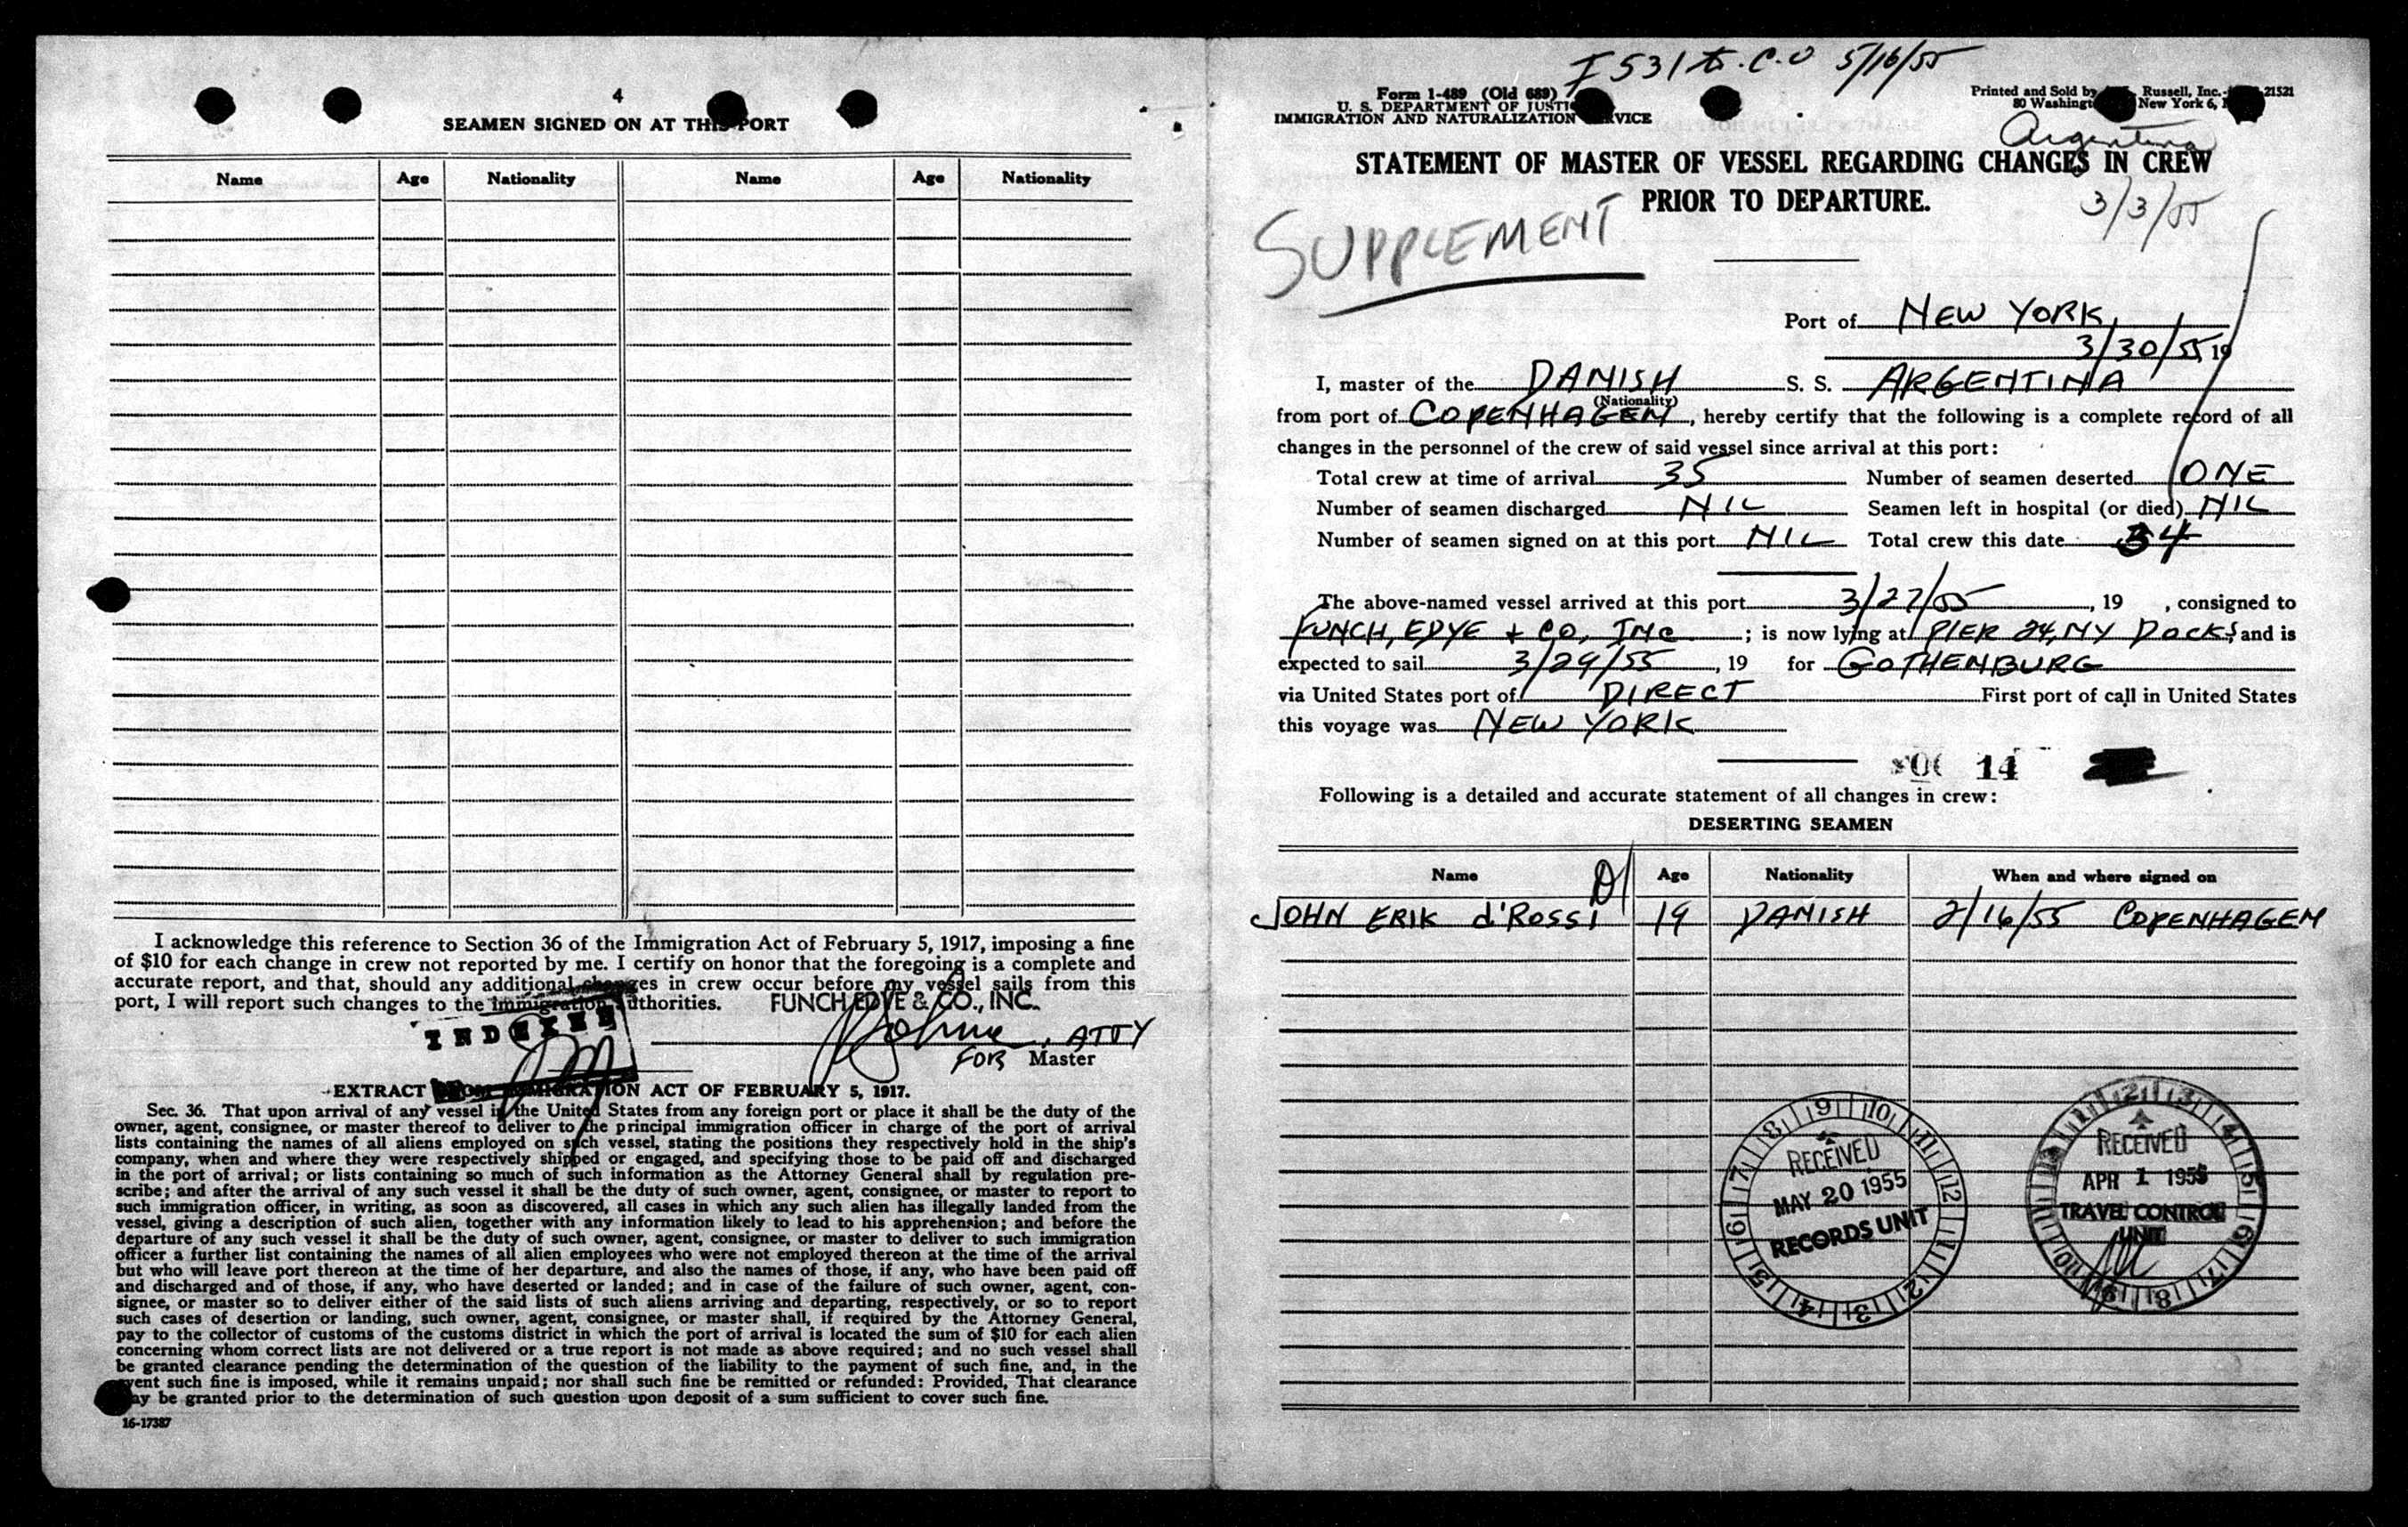 4
SEAMEN SIGNED ON AT THIS PORT
Name Age Nationality Name Age Nationality
I acknowledge this reference to Section 36 of the Immigration Act of February 5, 1917, imposing a fine
of $10 for each change in crew not reported by me. I certify on honor that the foregoing is a complete and
accurate report, and that, should any additional changes in crew occur before my vessel sails from this
port, I will report such changes to the immigration authorities. FUNCH, EDYE & CO., INC.
INDEXED
, ATTY
FOR Master
EXTRACT FROM IMMIGRATION ACT OF FEBRUARY 5, 1917.
Sec. 36. That upon arrival of any vessel in the United States from any foreign port or place it shall be the duty of the
owner, agent, consignee, or master thereof to deliver to the principal immigration officer in charge of the port of arrival
lists containing the names of all aliens employed on such vessel, stating the positions they respectively hold in the ship's
company, when and where they were respectively shipped or engaged, and specifying those to be paid off and discharged
in the port of arrival; or lists containing so much of such information as the Attorney General shall by regulation pre-
scribe; and after the arrival of any such vessel it shall be the duty of such owner, agent, consignee, or master to report to
such immigration officer, in writing, as soon as discovered, all cases in which any such alien has illegally landed from the
vessel, giving a description of such alien, together with any information likely to lead to his apprehension; and before the
departure of any such vessel it shall be the duty of such owner, agent, consignee, or master to deliver to such immigration
officer a further list containing the names of all alien employees who were not employed thereon at the time of the arrival
but who will leave port thereon at the time of her departure, and also the names of those, if any, who have been paid off
and discharged and of those, if any, who have deserted or landed; and in case of the failure of such owner, agent, con-
signee, or master so to deliver either of the said lists of such aliens arriving and departing, respectively, or so to report
such cases of desertion or landing, such owner, agent, consignee, or master shall, if required by the Attorney General,
pay to the collector of customs of the customs district in which the port of arrival is located the sum of $10 for each alien
concerning whom correct lists are not delivered or a true report is not made as above required; and no such vessel shall
be granted clearance pending the determination of the question of the liability to the payment of such fine, and, in the
event such fine is imposed, while it remains unpaid; nor shall such fine be remitted or refunded: Provided, That clearance
may be granted prior to the determination of such question upon deposit of a sum sufficient to cover such fine.
16-17387
I 531 to C.O 5/16/55
Form I-489 (Old 689)
U. S. DEPARTMENT OF JUSTICE
IMMIGRATION AND NATURALIZATION SERVICE
Printed and Sold by Russell, Inc. 21521
80 Washington New York 6,
Argentina
STATEMENT OF MASTER OF VESSEL REGARDING CHANGES IN CREW
PRIOR TO DEPARTURE.
3/3/55
SUPPLEMENT
Port of NEW YORK
3/30/55, 19
I, master of the DANISH S. S. ARGENTINA
(Nationality)
from port of COPENHAGEN, hereby certify that the following is a complete record of all
changes in the personnel of the crew of said vessel since arrival at this port:
Total crew at time of arrival 35 Number of seamen deserted ONE
Number of seamen discharged NIL Seamen left in hospital (or died) NIL
Number of seamen signed on at this port NIL Total crew this date 34
The above-named vessel arrived at this port 3/27/55, 19 , consigned to
FUNCH, EDYE & CO, INC ; is now lying at PIER 24, NY DOCKS and is
expected to sail 3/29/55, 19 for GOTHENBURG
via United States port of DIRECT First port of call in United States
this voyage was NEW YORK
14
Following is a detailed and accurate statement of all changes in crew:
DESERTING SEAMEN
Name Age Nationality When and where signed on
JOHN ERIK d'ROSSI 19 DANISH 2/16/55 COPENHAGEN
RECEIVED
MAY 20 1955
RECORDS UNIT
RECEIVED
APR 1 1955
TRAVEL CONTROL
UNIT